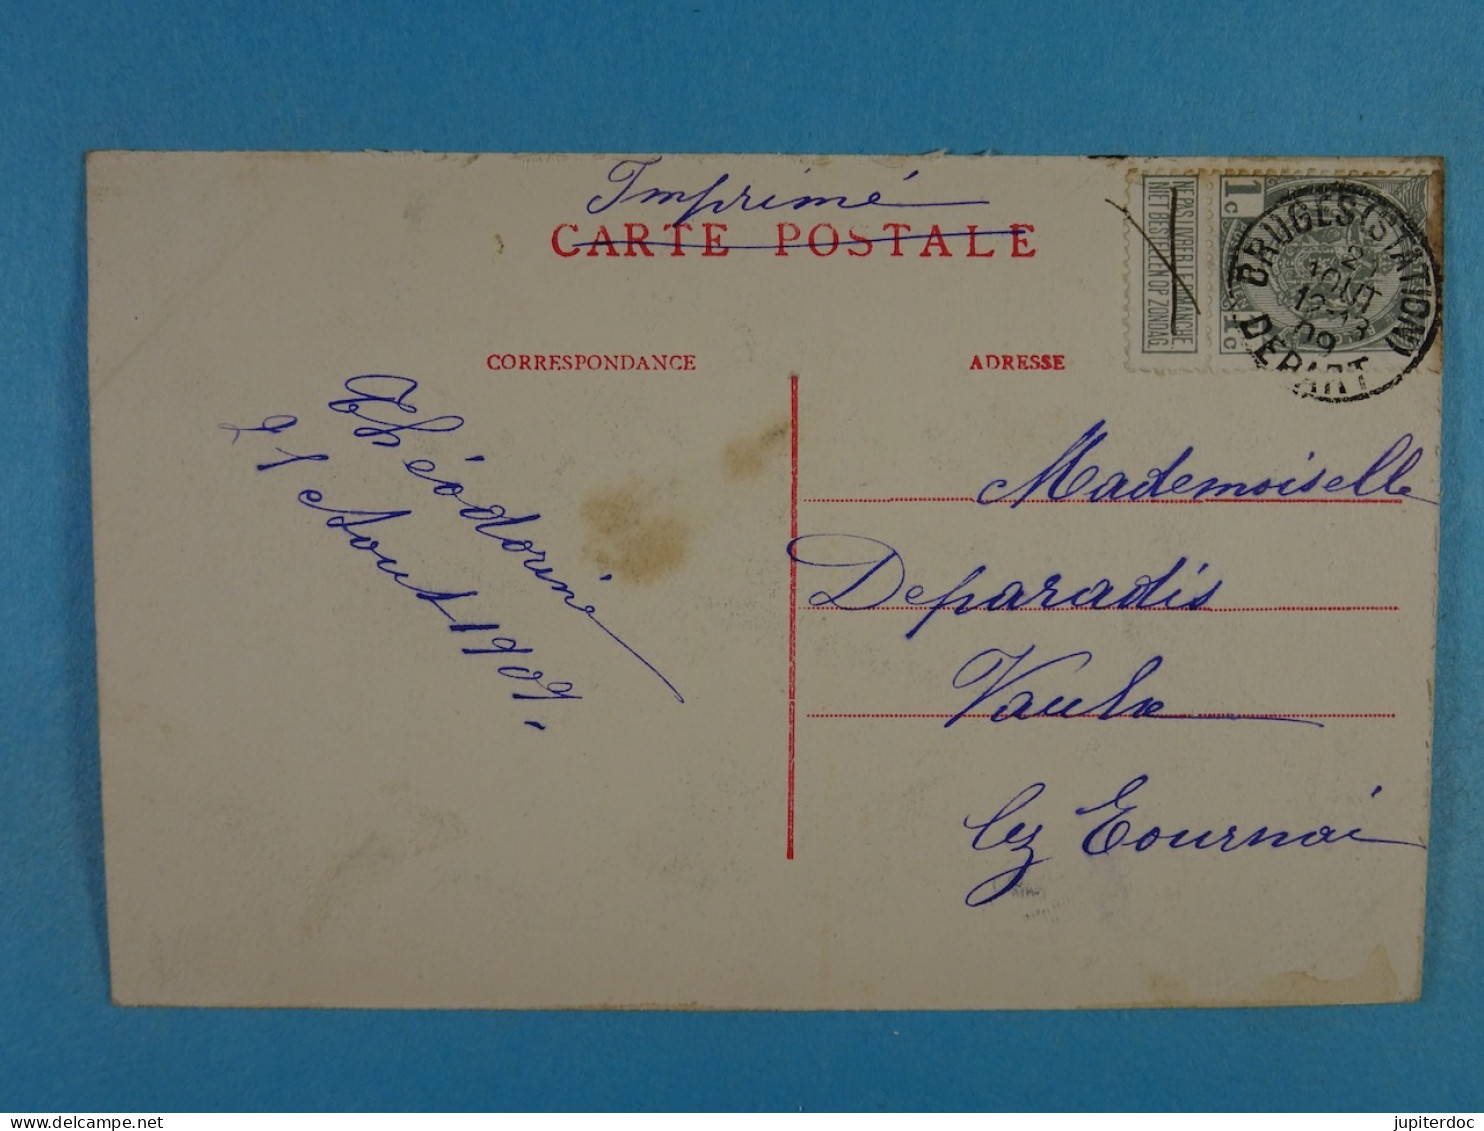 Imprimé
CARTE POSTALE
NE PAS LIVRER LE DIMANCHE
NIET BESTELLEN OP ZONDAG
1c
1c
BRUGES (STATION)
AOUT
09
DEPART
CORRESPONDANCE
ADRESSE
Théodorine
21 Août 1909.
Mademoiselle
Deparadis
Vaulx
lez Tournai
jupiterdoc